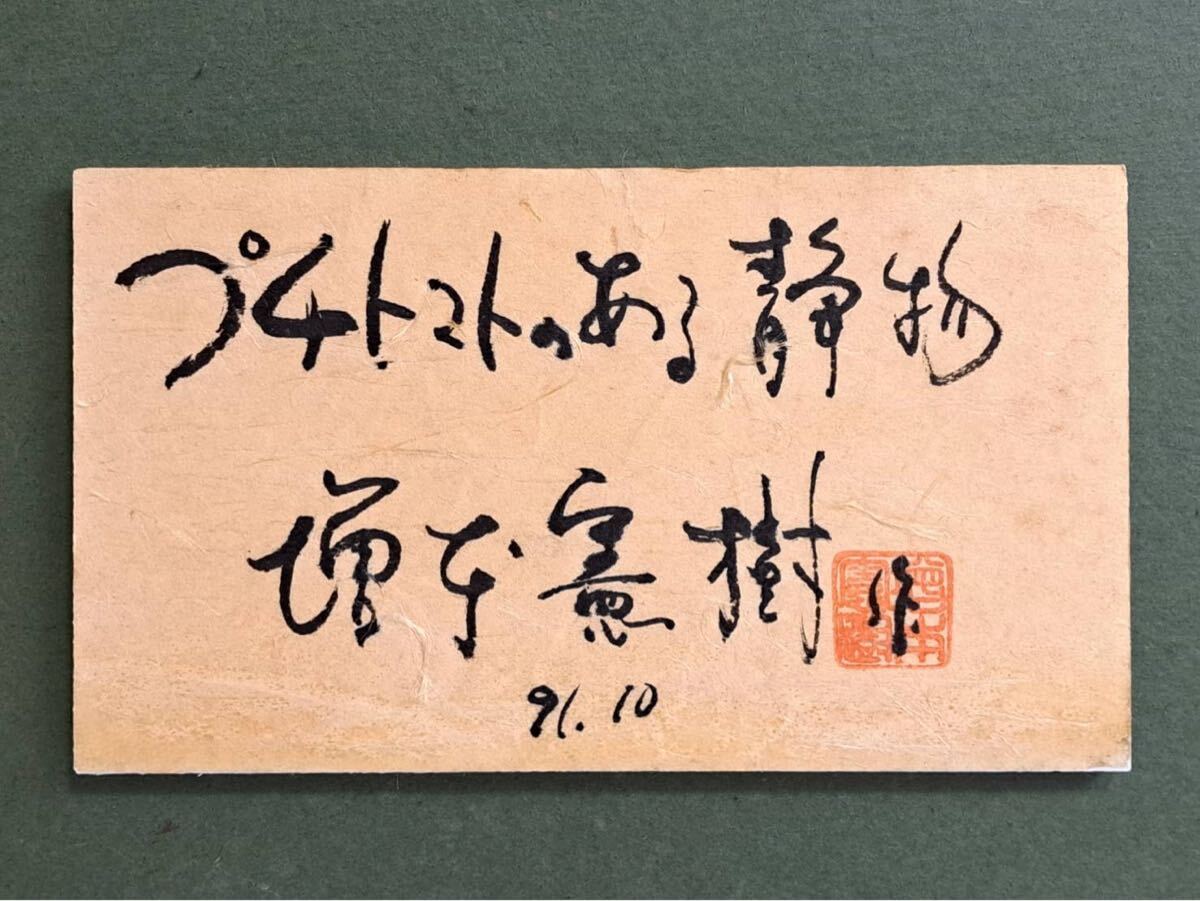 プチトマトのある静物
増本憲樹作
91.10